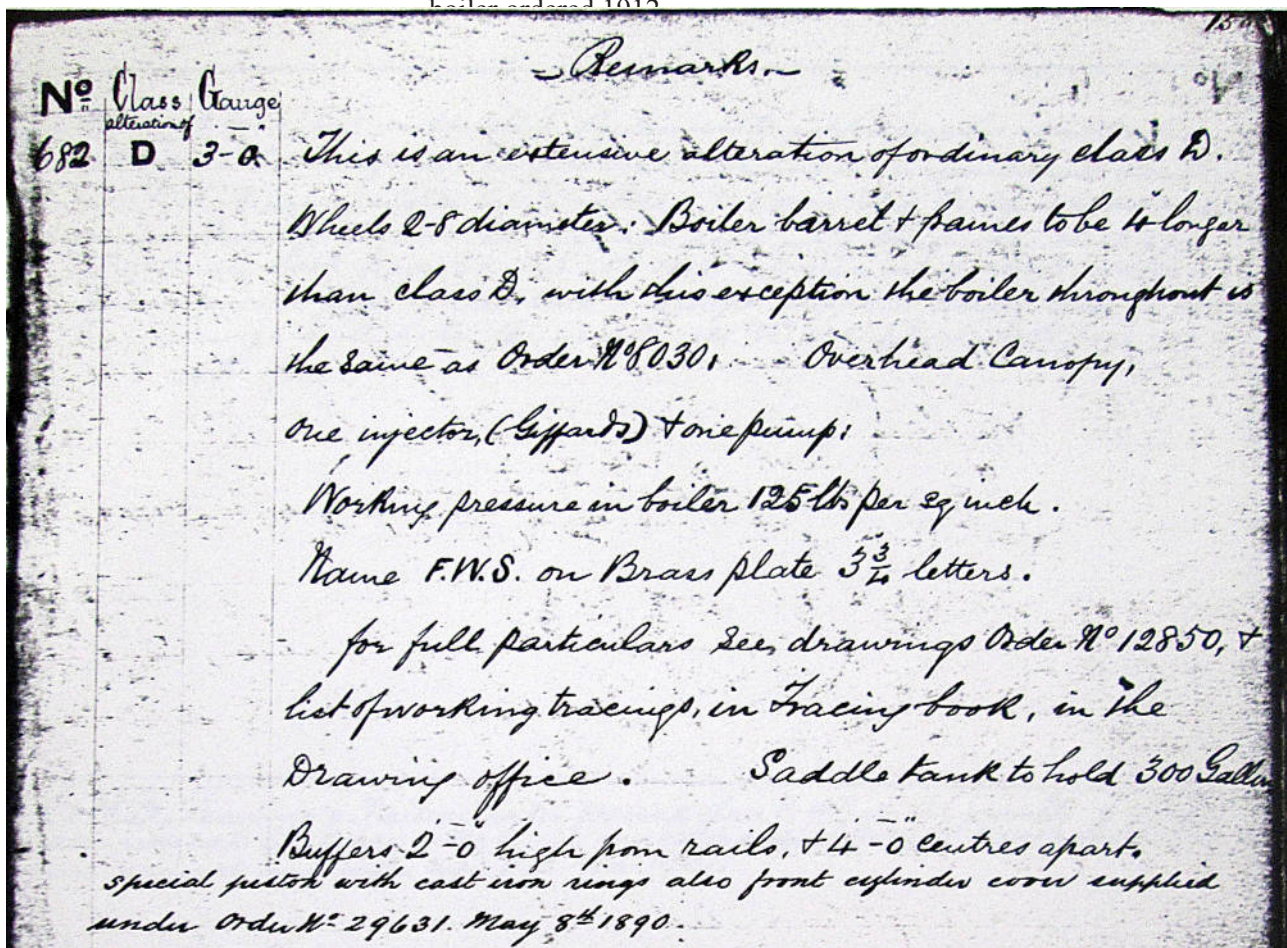 boiler ordered 1912
- Remarks. -
No Class Gauge
alteration of
682 D 3-0" This is an extensive alteration of ordinary class D.
Wheels 2-8 diameter. Boiler barrel + frames to be 4" longer
than class D, with this exception the boiler throughout is
the same as Order No 8030. Overhead Canopy,
one injector, (Giffards) + one pump.
Working pressure in boiler 125 lbs per sq inch.
Name F.W.S. on Brass plate 3 3/4 letters.
for full particulars see, drawings Order No 12850, +
list of working tracings, in Tracing book, in the
Drawing office. Saddle tank to hold 300
Buffers 2'-0" high from rails, + 4'-0" centres apart.
special piston with cast iron rings also front cylinder cover supplied
under Order No 29631. May 8th 1890.